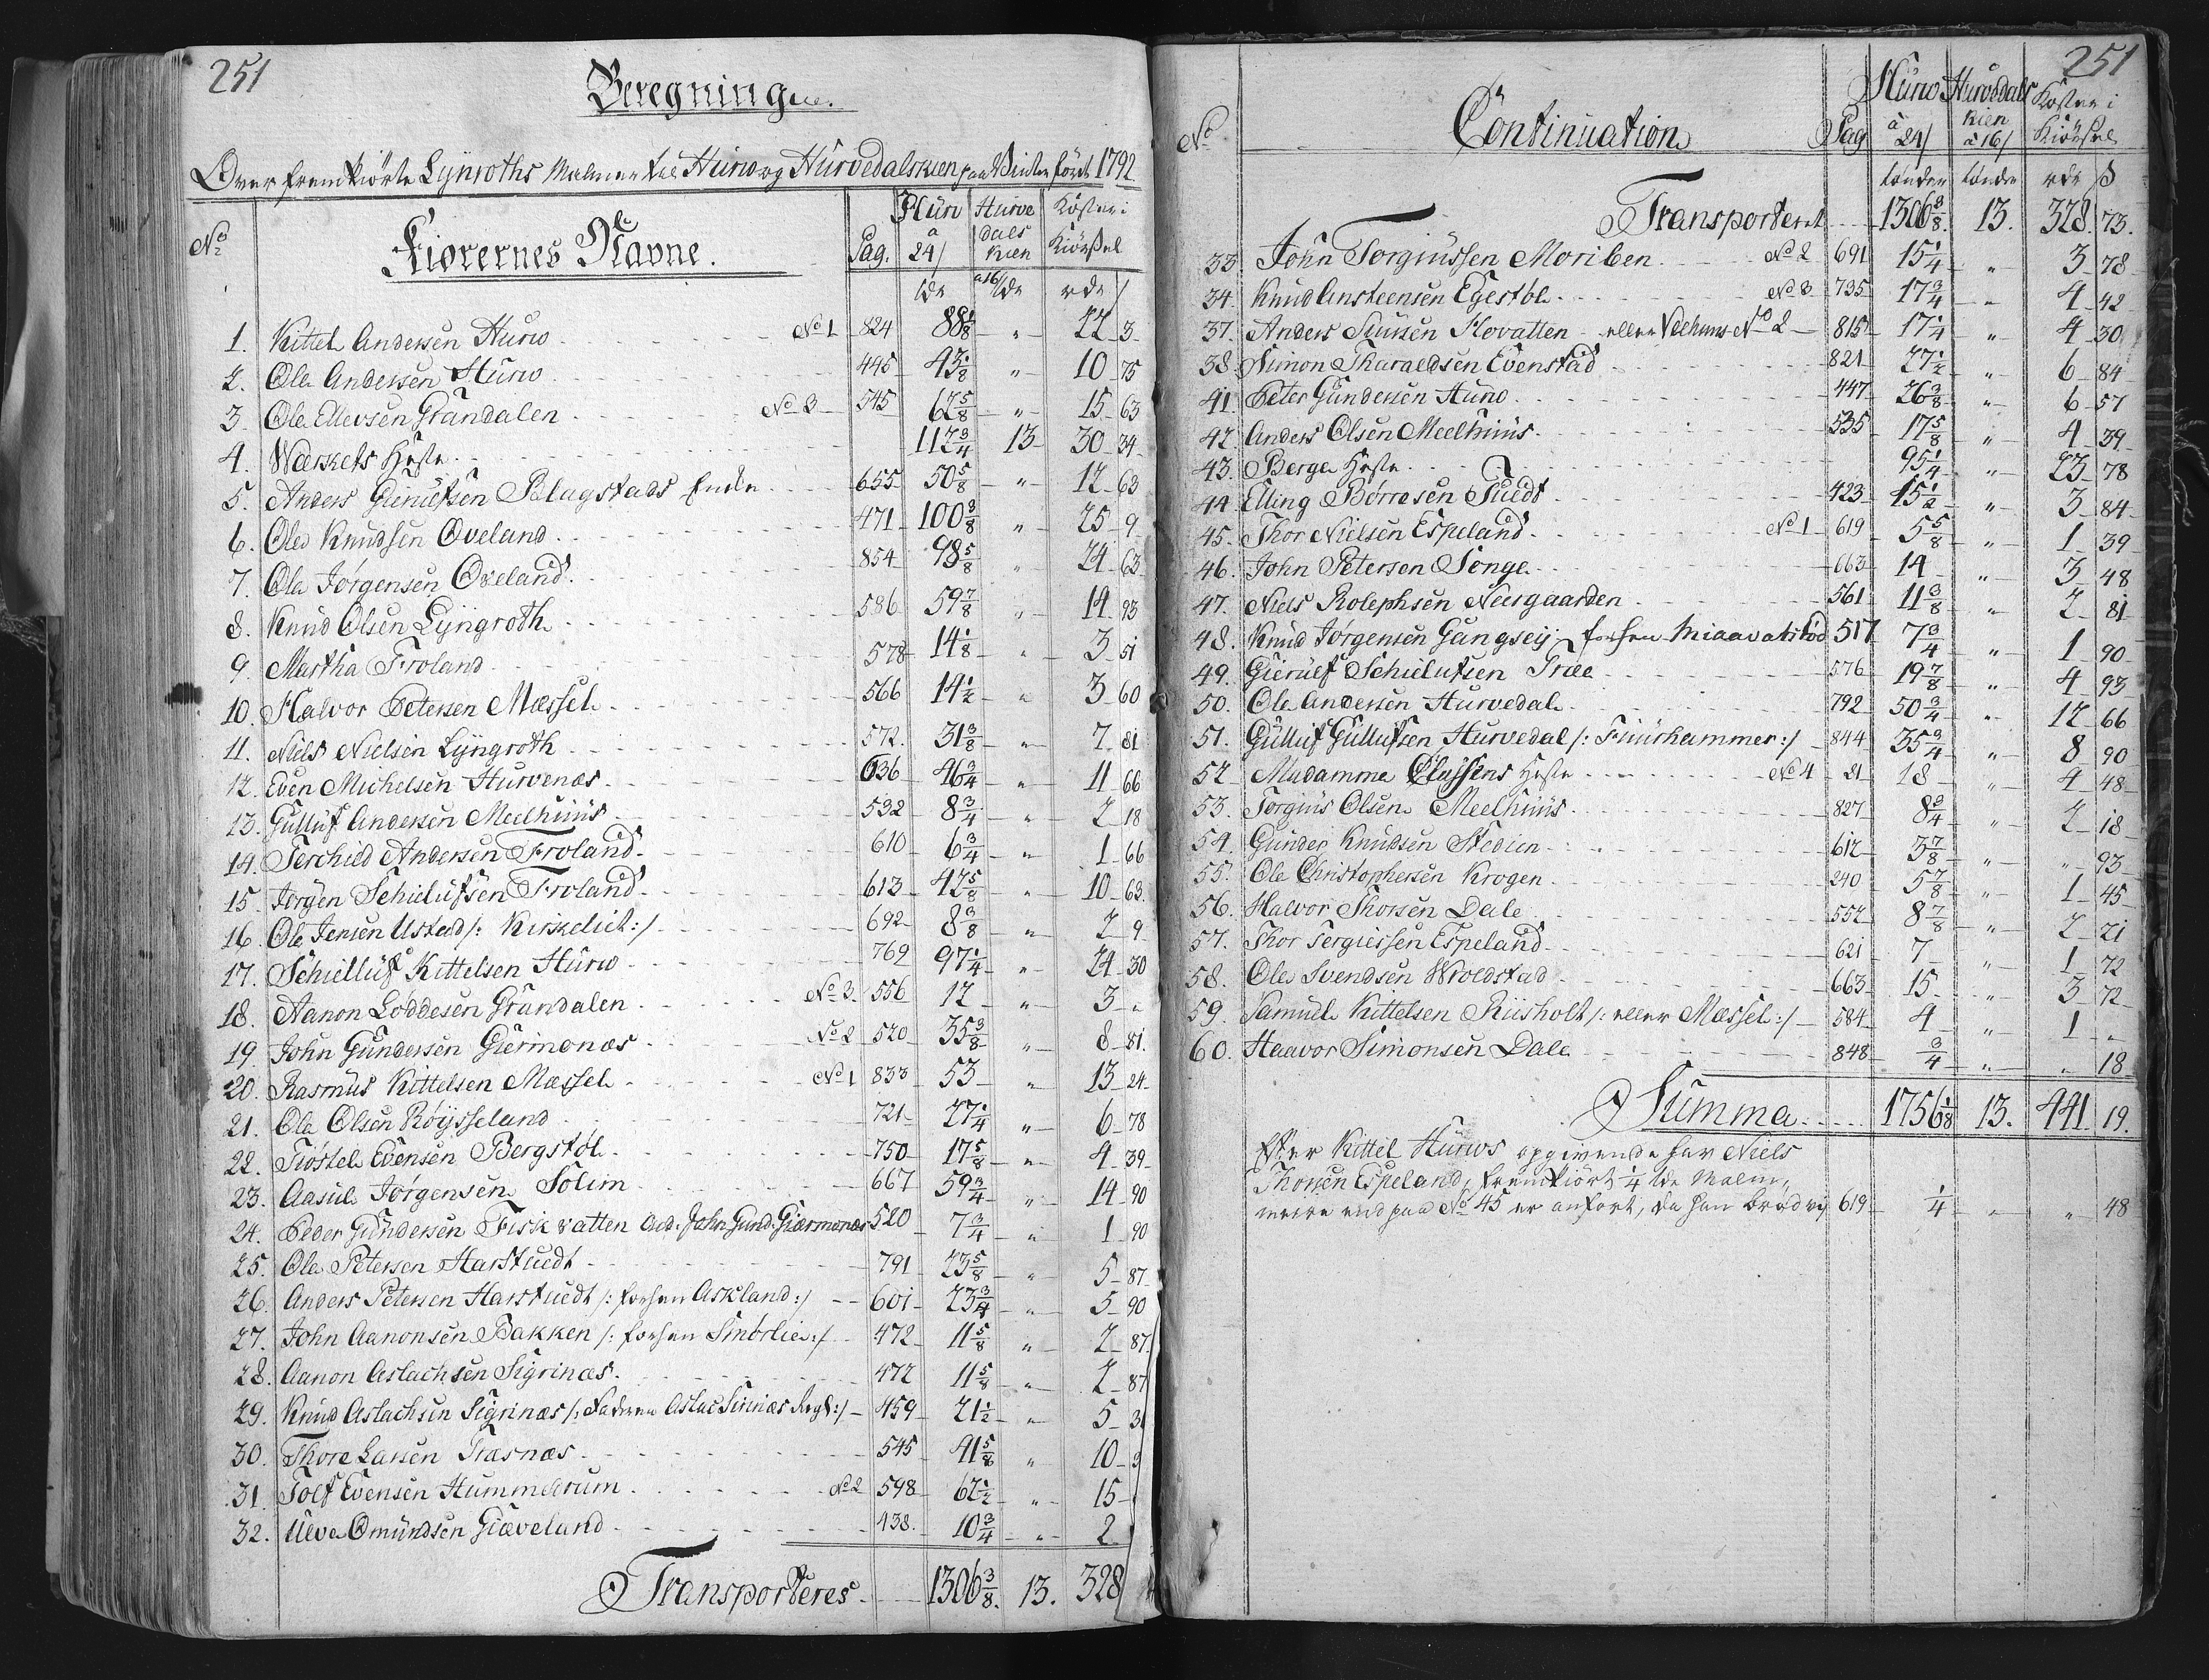 251
Beregning
Over fremkiörte Lÿnroths Malmer til Hurw og Hurvedalskien paa Vinterföret 1792.
No Kiörernes Navne. Pag. Hurw a 24/ Hurve dals kien a 16/ Koster i Kiörsel
tdr tdr rdr /
1. Kittel Andersen Hurw No 1 824 88 1/8 " 22 3
2. Ole Andersen Hurw 495 43 1/8 " 10 75
3. Ole Ellevsen Grandalen No 3 545 62 5/8 " 15 63
4. Wærkets Heste 112 3/4 13 30 34
5. Anders Gierulfsen Blagstads Enke 655 50 5/8 " 12 63
6. Ole Knudsen Oveland 471 100 3/8 " 25 9
7. Ole Jörgensen Oveland 854 98 5/8 " 24 63
8. Knud Olsen Lÿngroth 586 59 7/8 " 14 93
9. Martha Froland 578 14 1/8 " 3 51
10. Halvor Petersen Mæssel 566 14 1/2 " 3 60
11. Niels Nielsen Lÿngroth 572 31 3/8 " 7 81
12. Even Michelsen Hurvenæs 636 46 3/4 " 11 66
13. Gulluf Andersen Meelhuus 532 8 3/4 " 2 18
14. Terchild Andersen Froland 610 6 3/4 " 1 66
15. Jörgen Schielufsen Froland 613 42 5/8 " 10 63
16. Ole Jensen Ustad /: Kirskelist :/ 692 8 3/8 " 2 9
17. Schielluf Kittelsen Hurw 769 97 1/4 " 24 30
18. Aanon Loddesen Grandalen No 3 556 12 " 3 "
19. John Gundersen Giermonæs No 2 520 35 3/8 " 8 81
20. Rasmus Kittelsen Mæssel No 1 833 53 " 13 24
21. Ole Olsen Röÿsseland 721 27 1/4 " 6 78
22. Tiöstel Evensen Bergstöl 750 17 5/8 " 4 39
23. Aasul Jörgensen Solim 667 59 3/4 " 14 90
24. Peder Gundersen Fiskvatten And: John Gund: Giærmonæs 520 7 3/4 " 1 90
25. Ole Petersen Harstuedt 791 23 5/8 " 5 87
26. Anders Petersen Harstuedt /: forhen Askland :/ 601 23 3/4 " 5 90
27. John Aanonsen Bakken /: forhen Smörlie :/ 472 11 5/8 " 2 87
28. Aanon Aslachsen Sigrinæs 472 11 5/8 " 2 87
29. Knud Aslachsen Sigrinæs /: Faderen Aslac Sirinæs Regt :/ 459 21 1/2 " 5 3
30. Thore Larsen Træsnæs 545 41 5/8 " 10 3
31. Tolf Evensen Hummelrum No 2 598 62 1/2 " 15
32. Ulve Omundsen Giæveland 438 10 3/4 " 2
Transporteres 1306 3/8 13. 328
251
No Continuation Pag Hurw a 24/ Hurvedals kien a 16/ Koster i Kiörsel
tönder tönder rdr ß
Transporteret 1306 3/8 13. 328. 73.
33. John Torgiussen Moriben No 2 691 15 1/4 " 3 78
34. Knud Ansteensen Egestöl No 3 735 17 3/4 " 4 42
37. Anders Siursen Hovatten eller Veehuus No 2 815 17 1/4 " 4 30
38. Simon Tharaldsen Evenstad 821 27 1/2 " 6 84
41. Peter Gundersen Hurw 447 26 3/8 " 6 57
42. Anders Olsen Meelhuus 535 17 5/8 " 4 39
43. Berge Heste 95 1/4 " 23 78
44. Elling Börresen Tuedt 423 15 1/2 " 3 84
45. Thor Nielsen Espeland No 1 619 5 5/8 " 1 39
46. John Petersen Songe 663 14 " 3 48
47. Niels Rolephsen Neergaarden 561 11 3/8 " 2 81
48. Knud Jörgensen Gangseÿ forhen Miaavatstöd 517 7 3/4 " 1 90
49. Gierulf Schielufsen Træe 576 19 7/8 " 4 93
50. Ole Andersen Hurvedal 792 50 3/4 " 12 66
51. Gulluf Gullufsen Hurvedal /: Fuurhammer :/ 844 35 3/4 " 8 90
52. Madamme Classens Heste No 4 21 18 " 4 48
53. Torgius Olsen Meelhuus 827 8 3/4 " 2 18
54. Gunder Knudsen Stedien 612 3 7/8 " " 93
55. Ole Christophersen Krogen 240 5 7/8 " 1 45
56. Halvor Thorsen Dale 552 8 7/8 " 2 21
57. Thor Tergiessen Espeland 621 7 " 1 72
58. Ole Svendsen Wroldstad 663 15 " 3 72
59. Samuel Kittelsen Riisholt /: eller Mæssel :/ 584 4 " 1 "
60. Haavor Simonsen Dale 848 3/4 " " 18
Summa 1756 1/8 13. 441. 19.
Efter Kittel Hurws opgivende har Niels
Thorsen Espeland, fremkiört 1/4 tde Malm,
meere end paa No 45 er anfört, da han bröd 619 1/4 " " 48